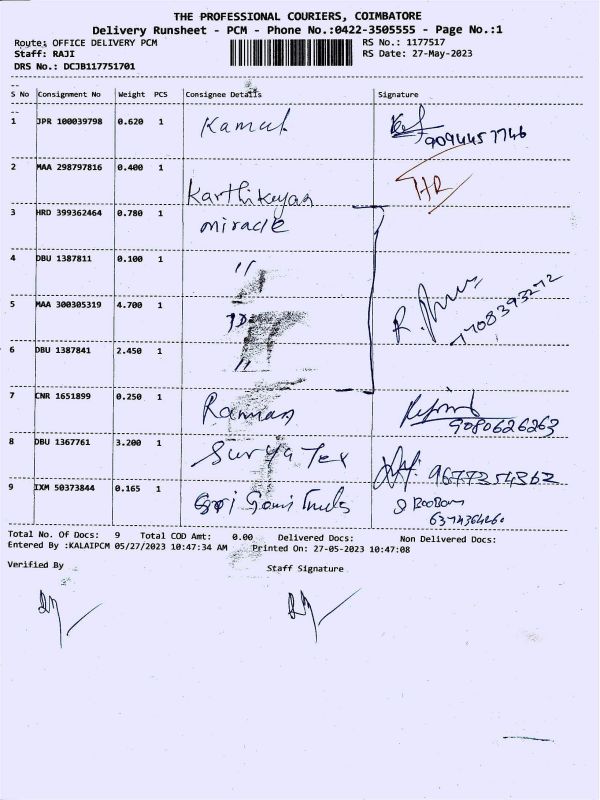 THE PROFESSIONAL COURIERS, COIMBATORE
Delivery Runsheet - PCM - Phone No.:0422-3505555 - Page No.:1
Route: OFFICE DELIVERY PCM RS No.: 1177517
Staff: RAJI RS Date: 27-May-2023
DRS No.: DCJB117751701
S No Consignment No Weight PCS Consignee Details Signature
1 JPR 100039798 0.620 1 Kamal
9094457746
2 MAA 298797816 0.400 1 Karthikeyan HR
3 HRD 399362464 0.780 1 miracle
4 DBU 1387811 0.100 1 "
5 MAA 300305319 4.700 1
7708393272
6 DBU 1387841 2.450 1 "
7 CNR 1651899 0.250 1 Raman
9080626263
8 DBU 1367761 3.200 1 Surya Tex 9677354362
9 IXM 50373844 0.165 1
Total No. Of Docs: 9 Total COD Amt: 0.00 Delivered Docs: Non Delivered Docs:
Entered By :KALAIPCM 05/27/2023 10:47:34 AM Printed On: 27-05-2023 10:47:08
Verified By Staff Signature